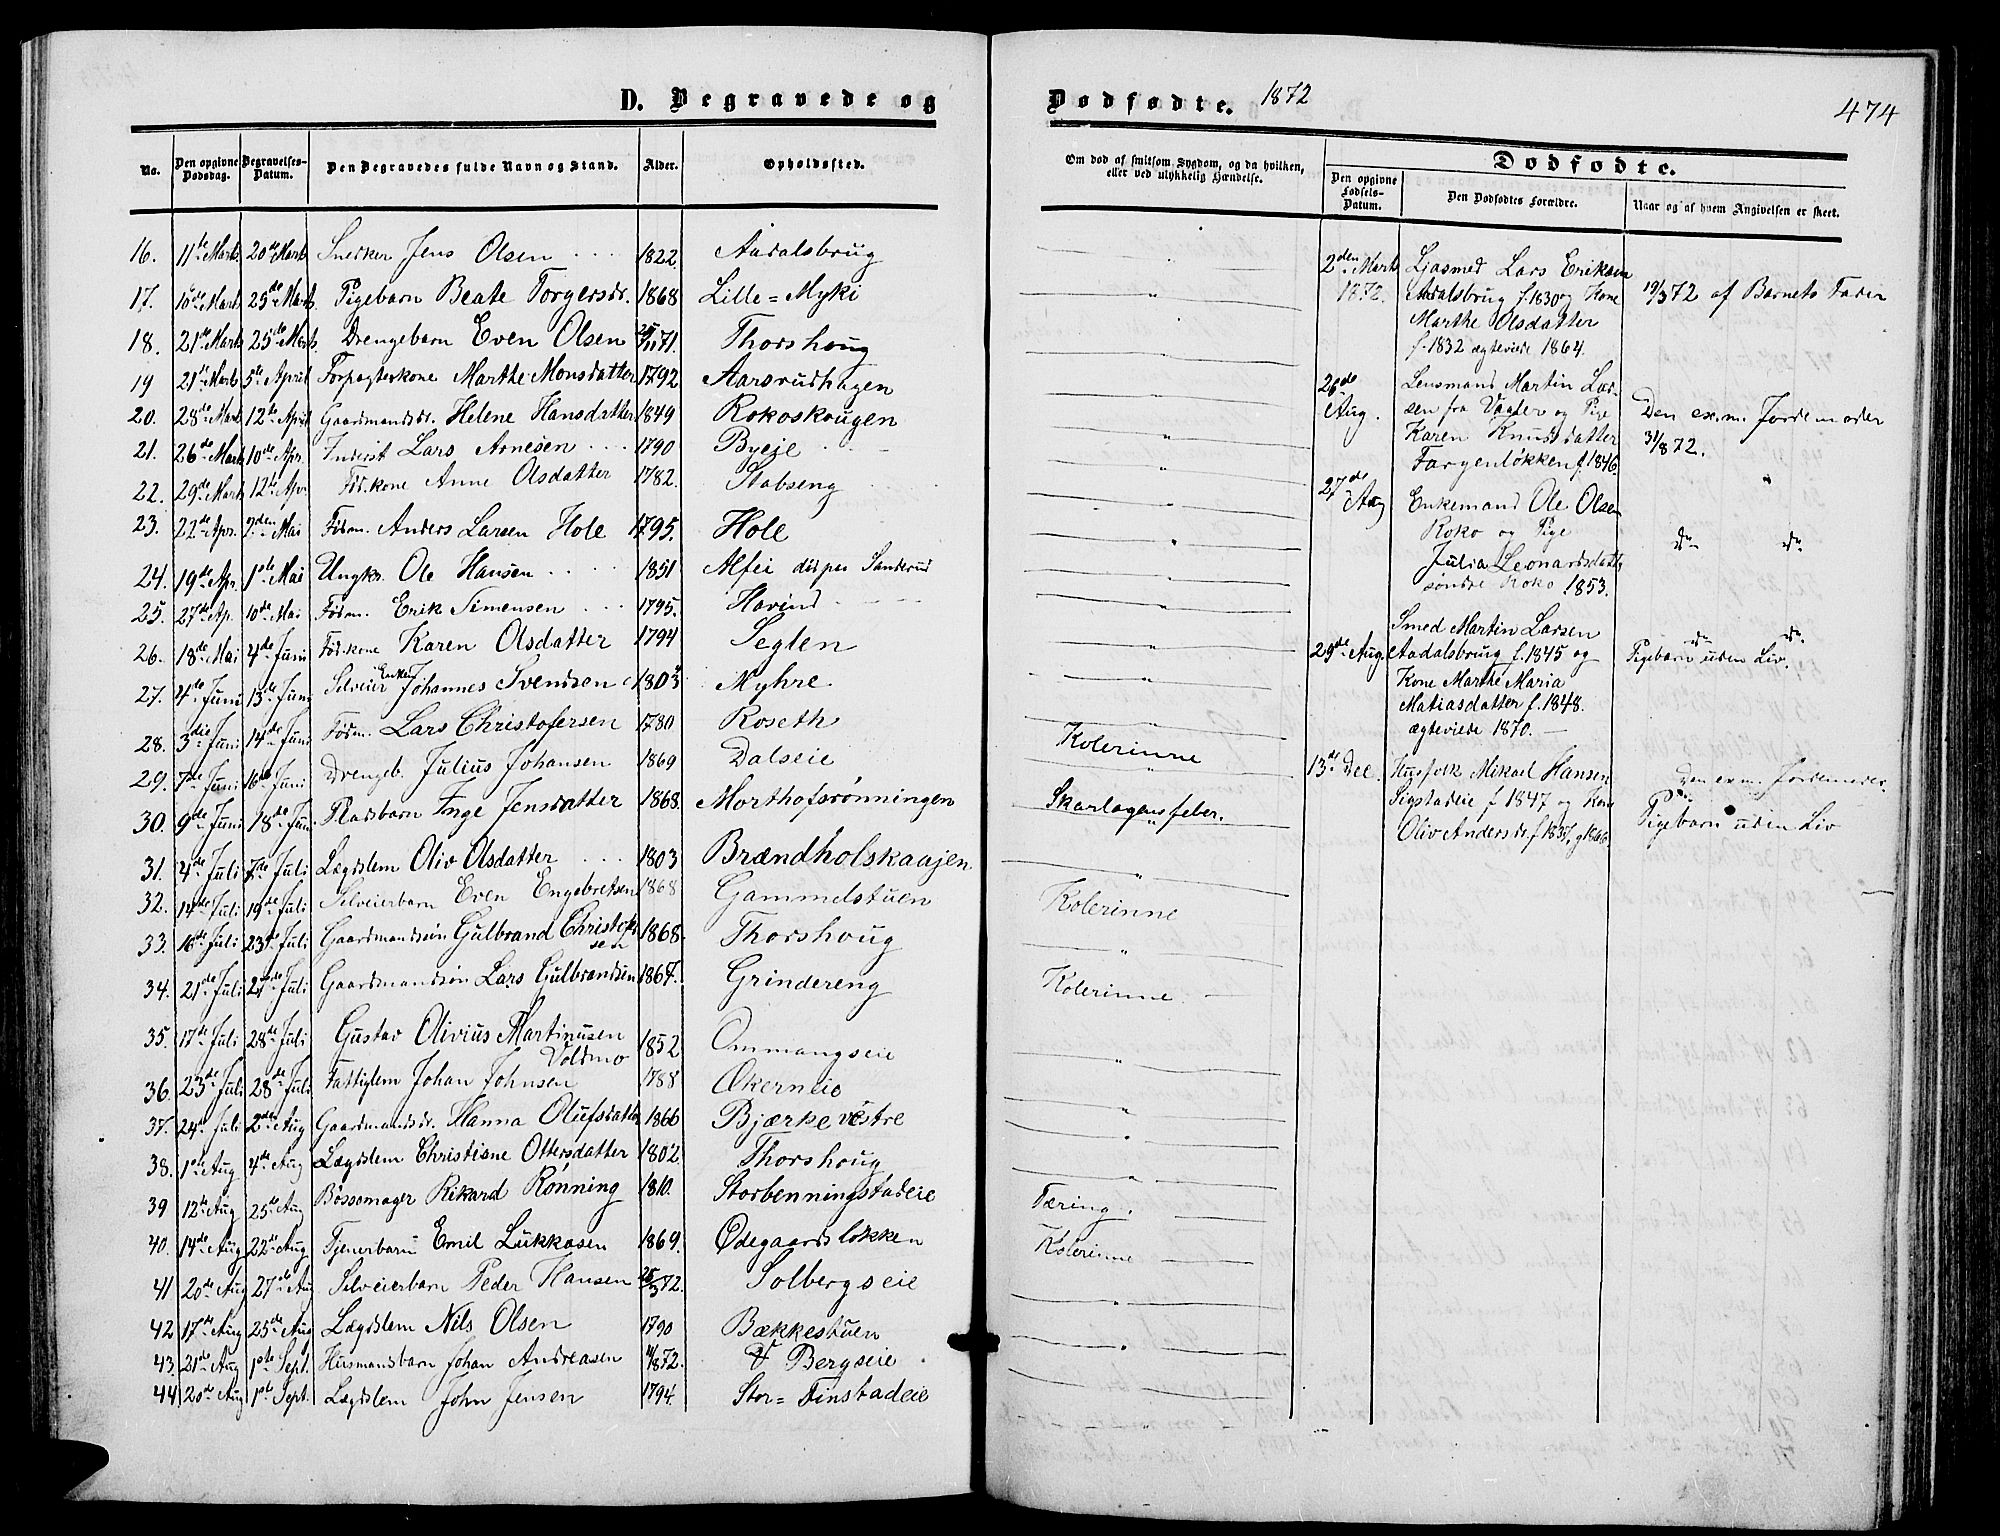 D. Begravede og
No.
Den opgivne Dødsdag.
Begravelses-Datum.
Den Begravedes fulde Navn og Stand.
Alder.
Opholdssted.
16. 11te Marts 20de Marts Snedker Jens Olsen 1822. Aadalsbrug
17. 10de Marts 25de Marts Pigebarn Beate Torgersdr. 1868 Lille=Myki
18. 21de Marts 25de Marts. Drengebarn Even Olsen 25/11 71. Thorshoug
19 21de Marts 5te April Forpagterkone Marthe Monsdatter 1792 Aarsrudhagen
20. 28de Marts 12te April Gaardmandsdr. Helene Hansdatter 1849 Rokoskougen
21. 26de Marts 10de Apr. Inderst Lars Arnesen 1790 Byeie
22. 29de Marts 12te Apr. Fød.kone Anne Olsdatter 1782. Stabseng
23. 22de Apr. 2den Mai Fødm. Anders Larsen Hole 1795. Hole
24. 19de Apr. 1ste Mai Ungkr. Ole Hansen 1851 Alfei Sanderud
25. 27de Ap. 10de Mai Fødm. Erik Simensen 1795. Havind
26. 18de Mai 4de Juni Fød.kone Karen Olsdatter 1794 Seglen
27. 4de Juni 13de Juni Selveier Enkem. Johannes Svendsen 1803 Myhre
28. 3die Juni 14de Juni Fødm. Lars Christofersen 1780 Roseth
29. 7de Juni 16de Juni Drengeb. Julius Johansen 1869 Dalseie
30. 9de Juni 18de Juni Pladsbarn Inge Jensdatter 1868. Morthofsrønningen
31. 4de Juli 7de Juli Lægdslem Oliv Olsdatter 1803 Brændholskaajen
32. 14de Juli 19de Juli Selveierbarn Even Engebretsen 1868 Gammelstuen
33. 16de Juli 23de Juli Gaardmandssøn Gulbrand Christofersen 1868. Thorshoug
34. 21de Juli 27de Juli Gaardmandssøn Lars Gulbrandsen 1867. Grindereng
35. 17de Juli 28de Juli Gustav Olivius Martinusen Voldmo 1852 Ommangseie
36. 23de Juli 28de Juli Fattiglem Johan Johnsen 1788 Økerneie
37. 24de Juli 2den Aug Gaardmandsdr. Hanna Olufsdatter 1866 Bjærke vestre
38. 1ste Aug 4de Aug Lægdslem Christiane Ottersdatter 1802. Thorshoug
39 12te Aug 25de Aug Bøssemager Rikard Rønning 1810. Storbenningstadeie
40. 14de Aug 22de Aug Tjenerbarn Emil Lukkasen 1869. Ødegaardsløkken
41 20de Aug 27de Aug Selveierbarn Peder Hansen 25/3 72. Solbergseie
42 17de Aug 25de Aug Lægdslem Nils Olsen 1790 Bækkestuen
43. 21de Aug 1ste Sept. Husmandsbarn Johan Andreasen 4/8 72. V Bergseie
44 20de Aug 1ste Sept. Lægdslem John Jensen 1794. Stor=Finstadeie
Dødfødte. 1872
474
Om død af smitsom Sygdom, og da hvilken,
eller ved ulykkelig Hændelse.
Dødfødte.
Den opgivne Fødsels-Datum.
Den Dødfødtes Forældre.
Naar og af hvem Angivelsen er skeet.
Kolerinne
Skarlagensfeber.
Kolerinne
Kolerinne
Tæring.
Kolerinne
2den Marts 1872. Ljasmed Lars Eriksen
Aadalsbrug f. 1830 og Kone 19/3 72 af Barnets Fader
Marthe Olsdatter
f. 1832 ægteviede 1864.
26de Aug. Lensmand Martin Larsen fra Vaaler og Pige
Karen Knudsdatter
Fargenløkken f. 1846. Den exm. Jordemoder
31/8 72.
27de Aug Enkemand Ole Olsen
Roko og Pige
Julia Leonardsdatter
søndre Roko 1853. do do
29de Aug. Smed Martin Larsen
Aadalsbrug f. 1845 og
Kone Marthe Maria
Matiasdatter f. 1848.
ægteviede 1870. do do
Pigebarn uden Liv.
13de Dec. Husfolk Mikael Hansen
Sigstadeie f 1847 og Kone
Oliv Andersdr. f. 1837, Den exm. Jordemoder
Pigebarn uden Liv